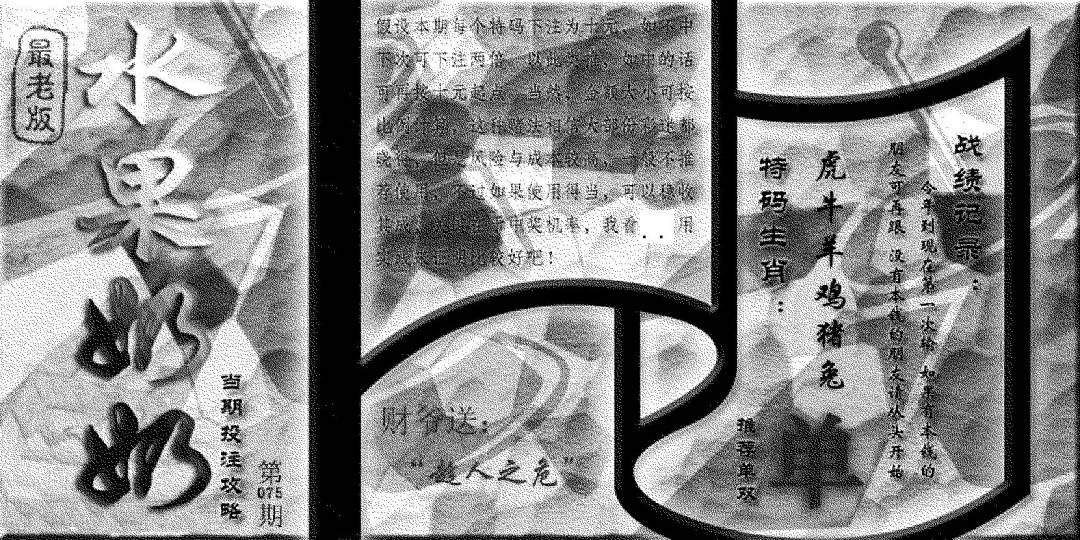 最老版
水果奶奶
当期投注攻略
第075期
假设本期每个特码下注为十元，如不中
下次可下注两倍，以此类推，如中的话
可再按十元起点，当然，金额大小可按
比例计算，这种赌法相信大部份彩迷都
晓得，但是风险与成本较高，一般不推
荐使用，不过如果使用得当，可以稳收
中奖机率，我看..用
比较好吧！
财爷送：
“趁人之危”
特码生肖：
虎牛羊鸡猪兔
推荐单双
单
战绩记录：
今年到现在第一次输 如果有本钱的
朋友可再跟 没有本钱的朋友请从头开始